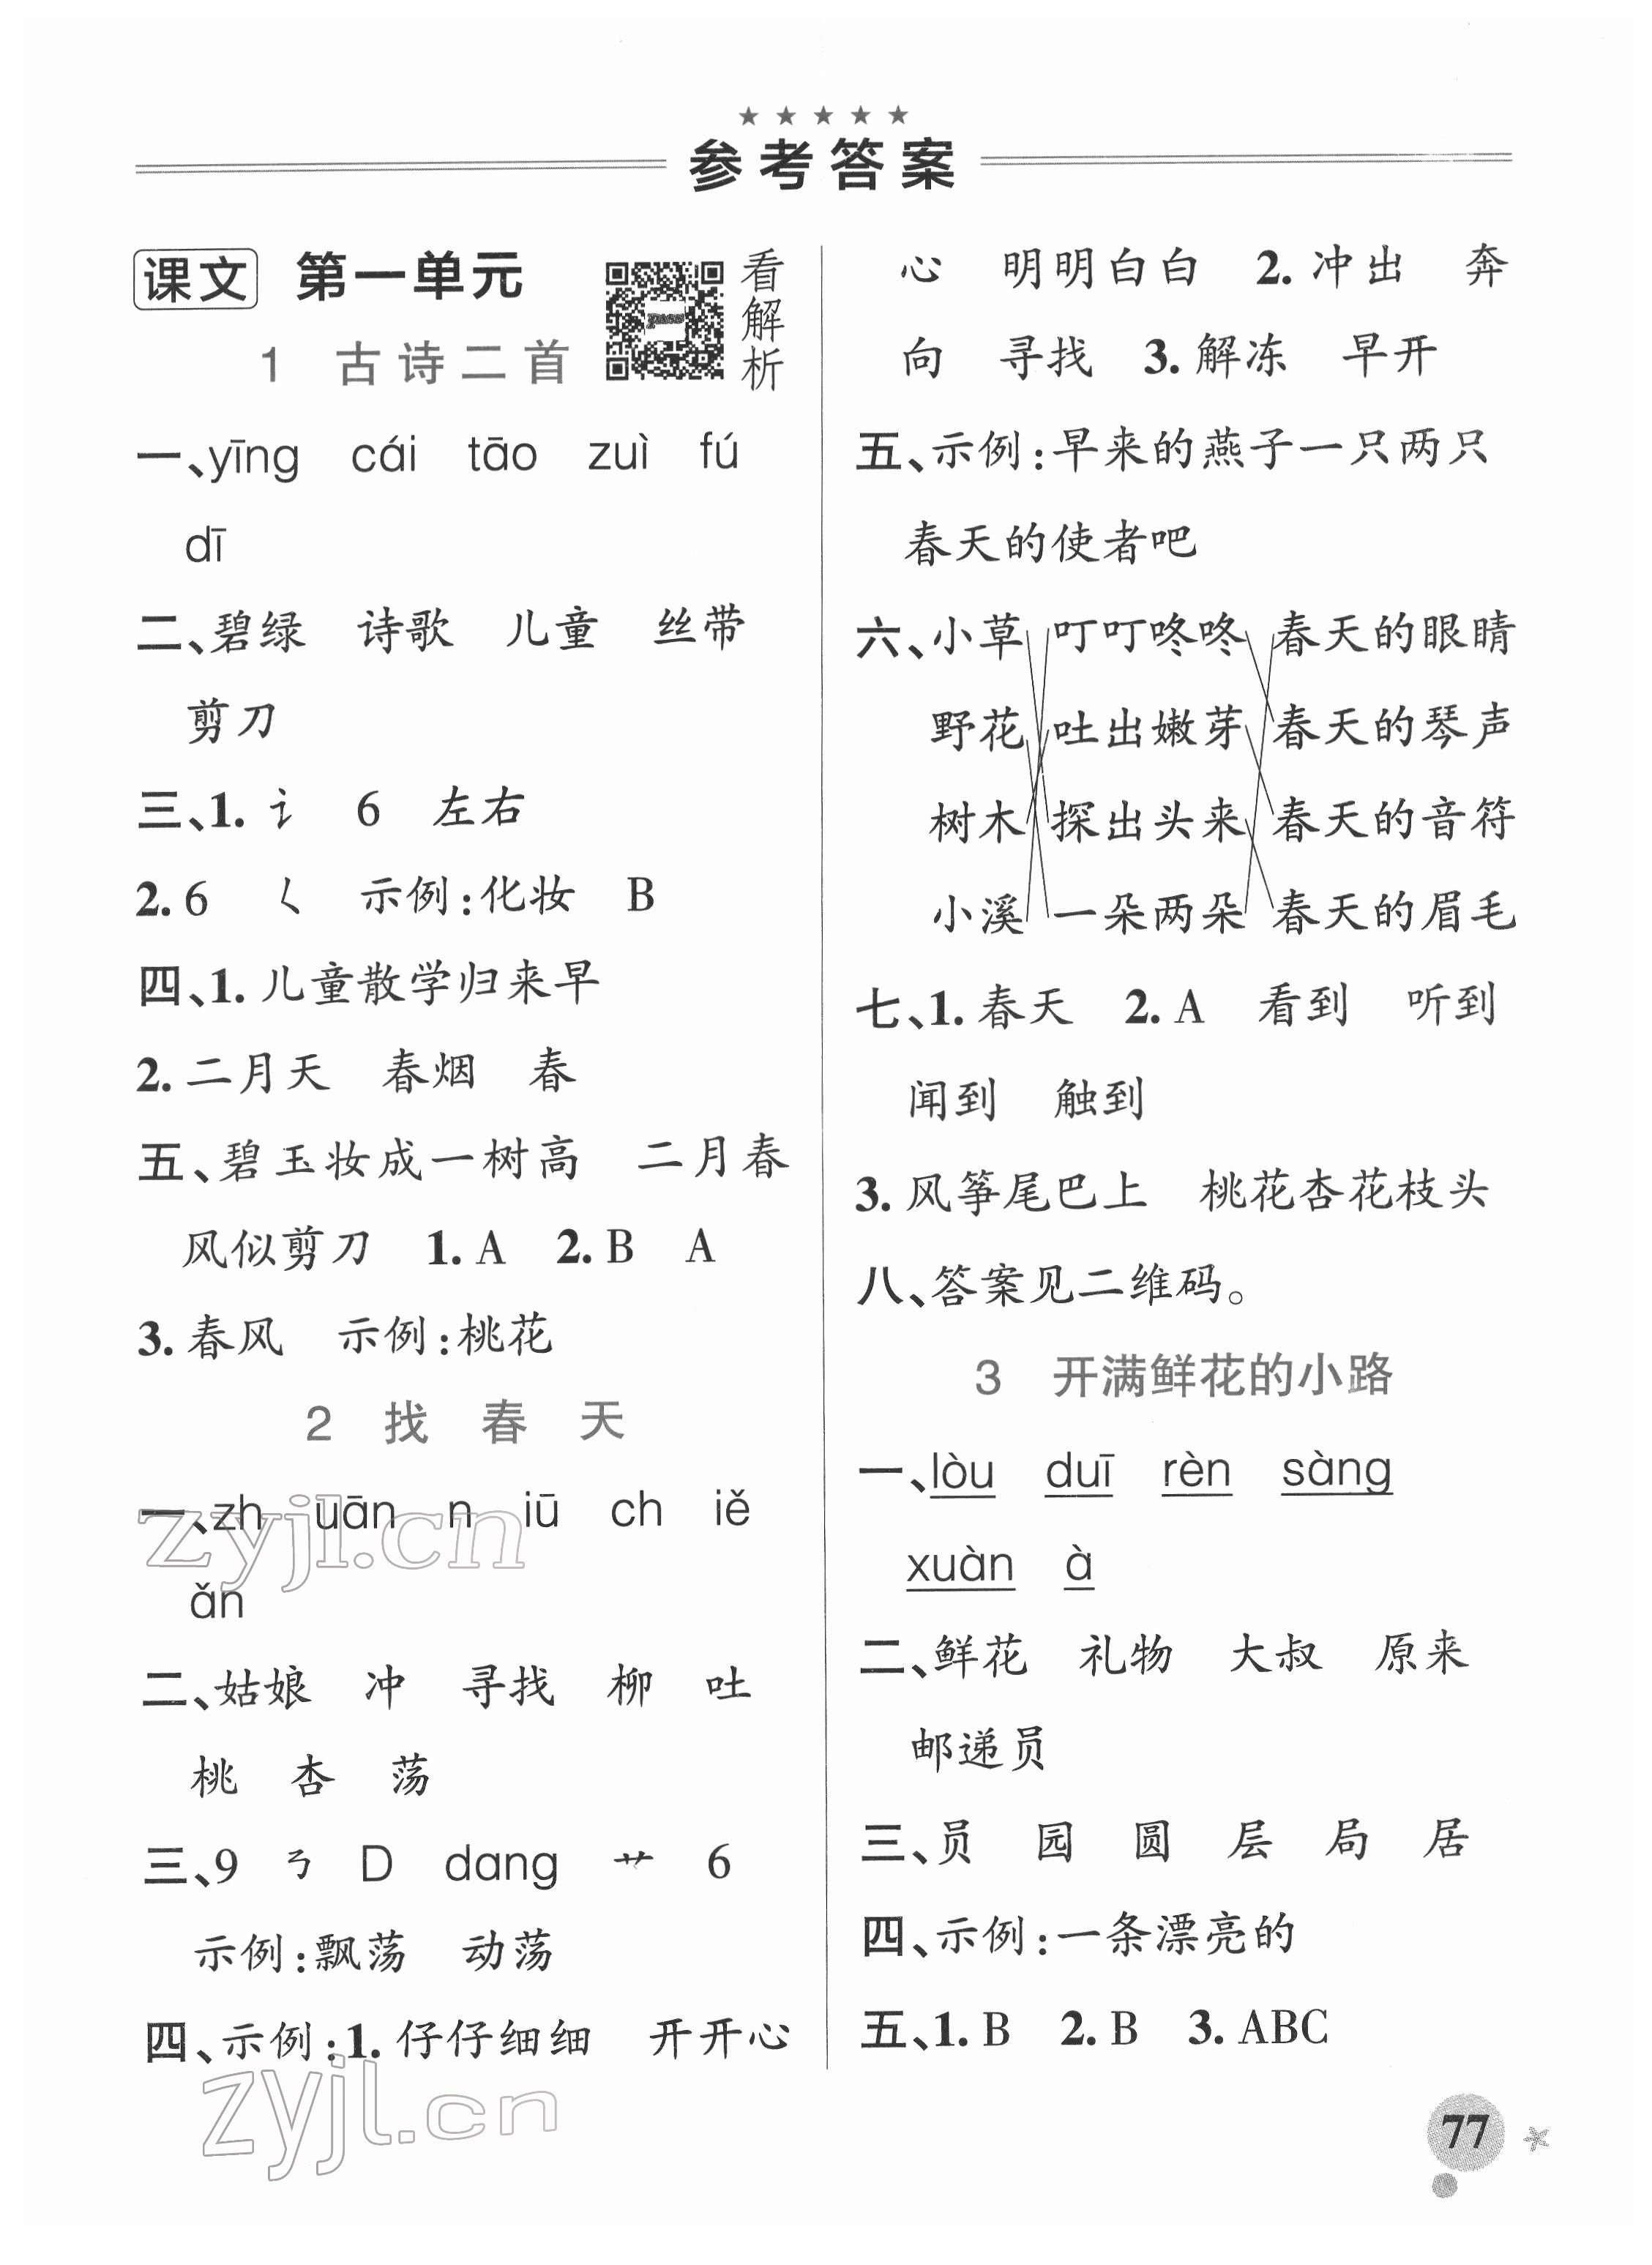 参考答案
课文 第一单元
看解析
1 古诗二首
一、yīng cái tāo zuì fú
dī
二、碧绿 诗歌 儿童 丝带
剪刀
三、1. 讠 6 左右
2. 6 ㄑ 示例:化妆 B
四、1. 儿童散学归来早
2. 二月天 春烟 春
五、碧玉妆成一树高 二月春
风似剪刀 1. A 2. B A
3. 春风 示例:桃花
2 找春天
一、zh uān n iū ch iě
ǎn
二、姑娘 冲 寻找 柳 吐
桃 杏 荡
三、9 ㄋ D dang 艹 6
示例:飘荡 动荡
四、示例:1. 仔仔细细 开开心
心 明明白白 2. 冲出 奔
向 寻找 3. 解冻 早开
五、示例:早来的燕子一只两只
春天的使者吧
六、小草 叮叮咚咚 春天的眼睛
野花 吐出嫩芽 春天的琴声
树木 探出头来 春天的音符
小溪 一朵两朵 春天的眉毛
七、1. 春天 2. A 看到 听到
闻到 触到
3. 风筝尾巴上 桃花杏花枝头
八、答案见二维码。
3 开满鲜花的小路
一、lòu duī rèn sàng
xuàn à
二、鲜花 礼物 大叔 原来
邮递员
三、员 园 圆 层 局 居
四、示例:一条漂亮的
五、1. B 2. B 3. ABC
77
zyjl.cn
zyjl.cn